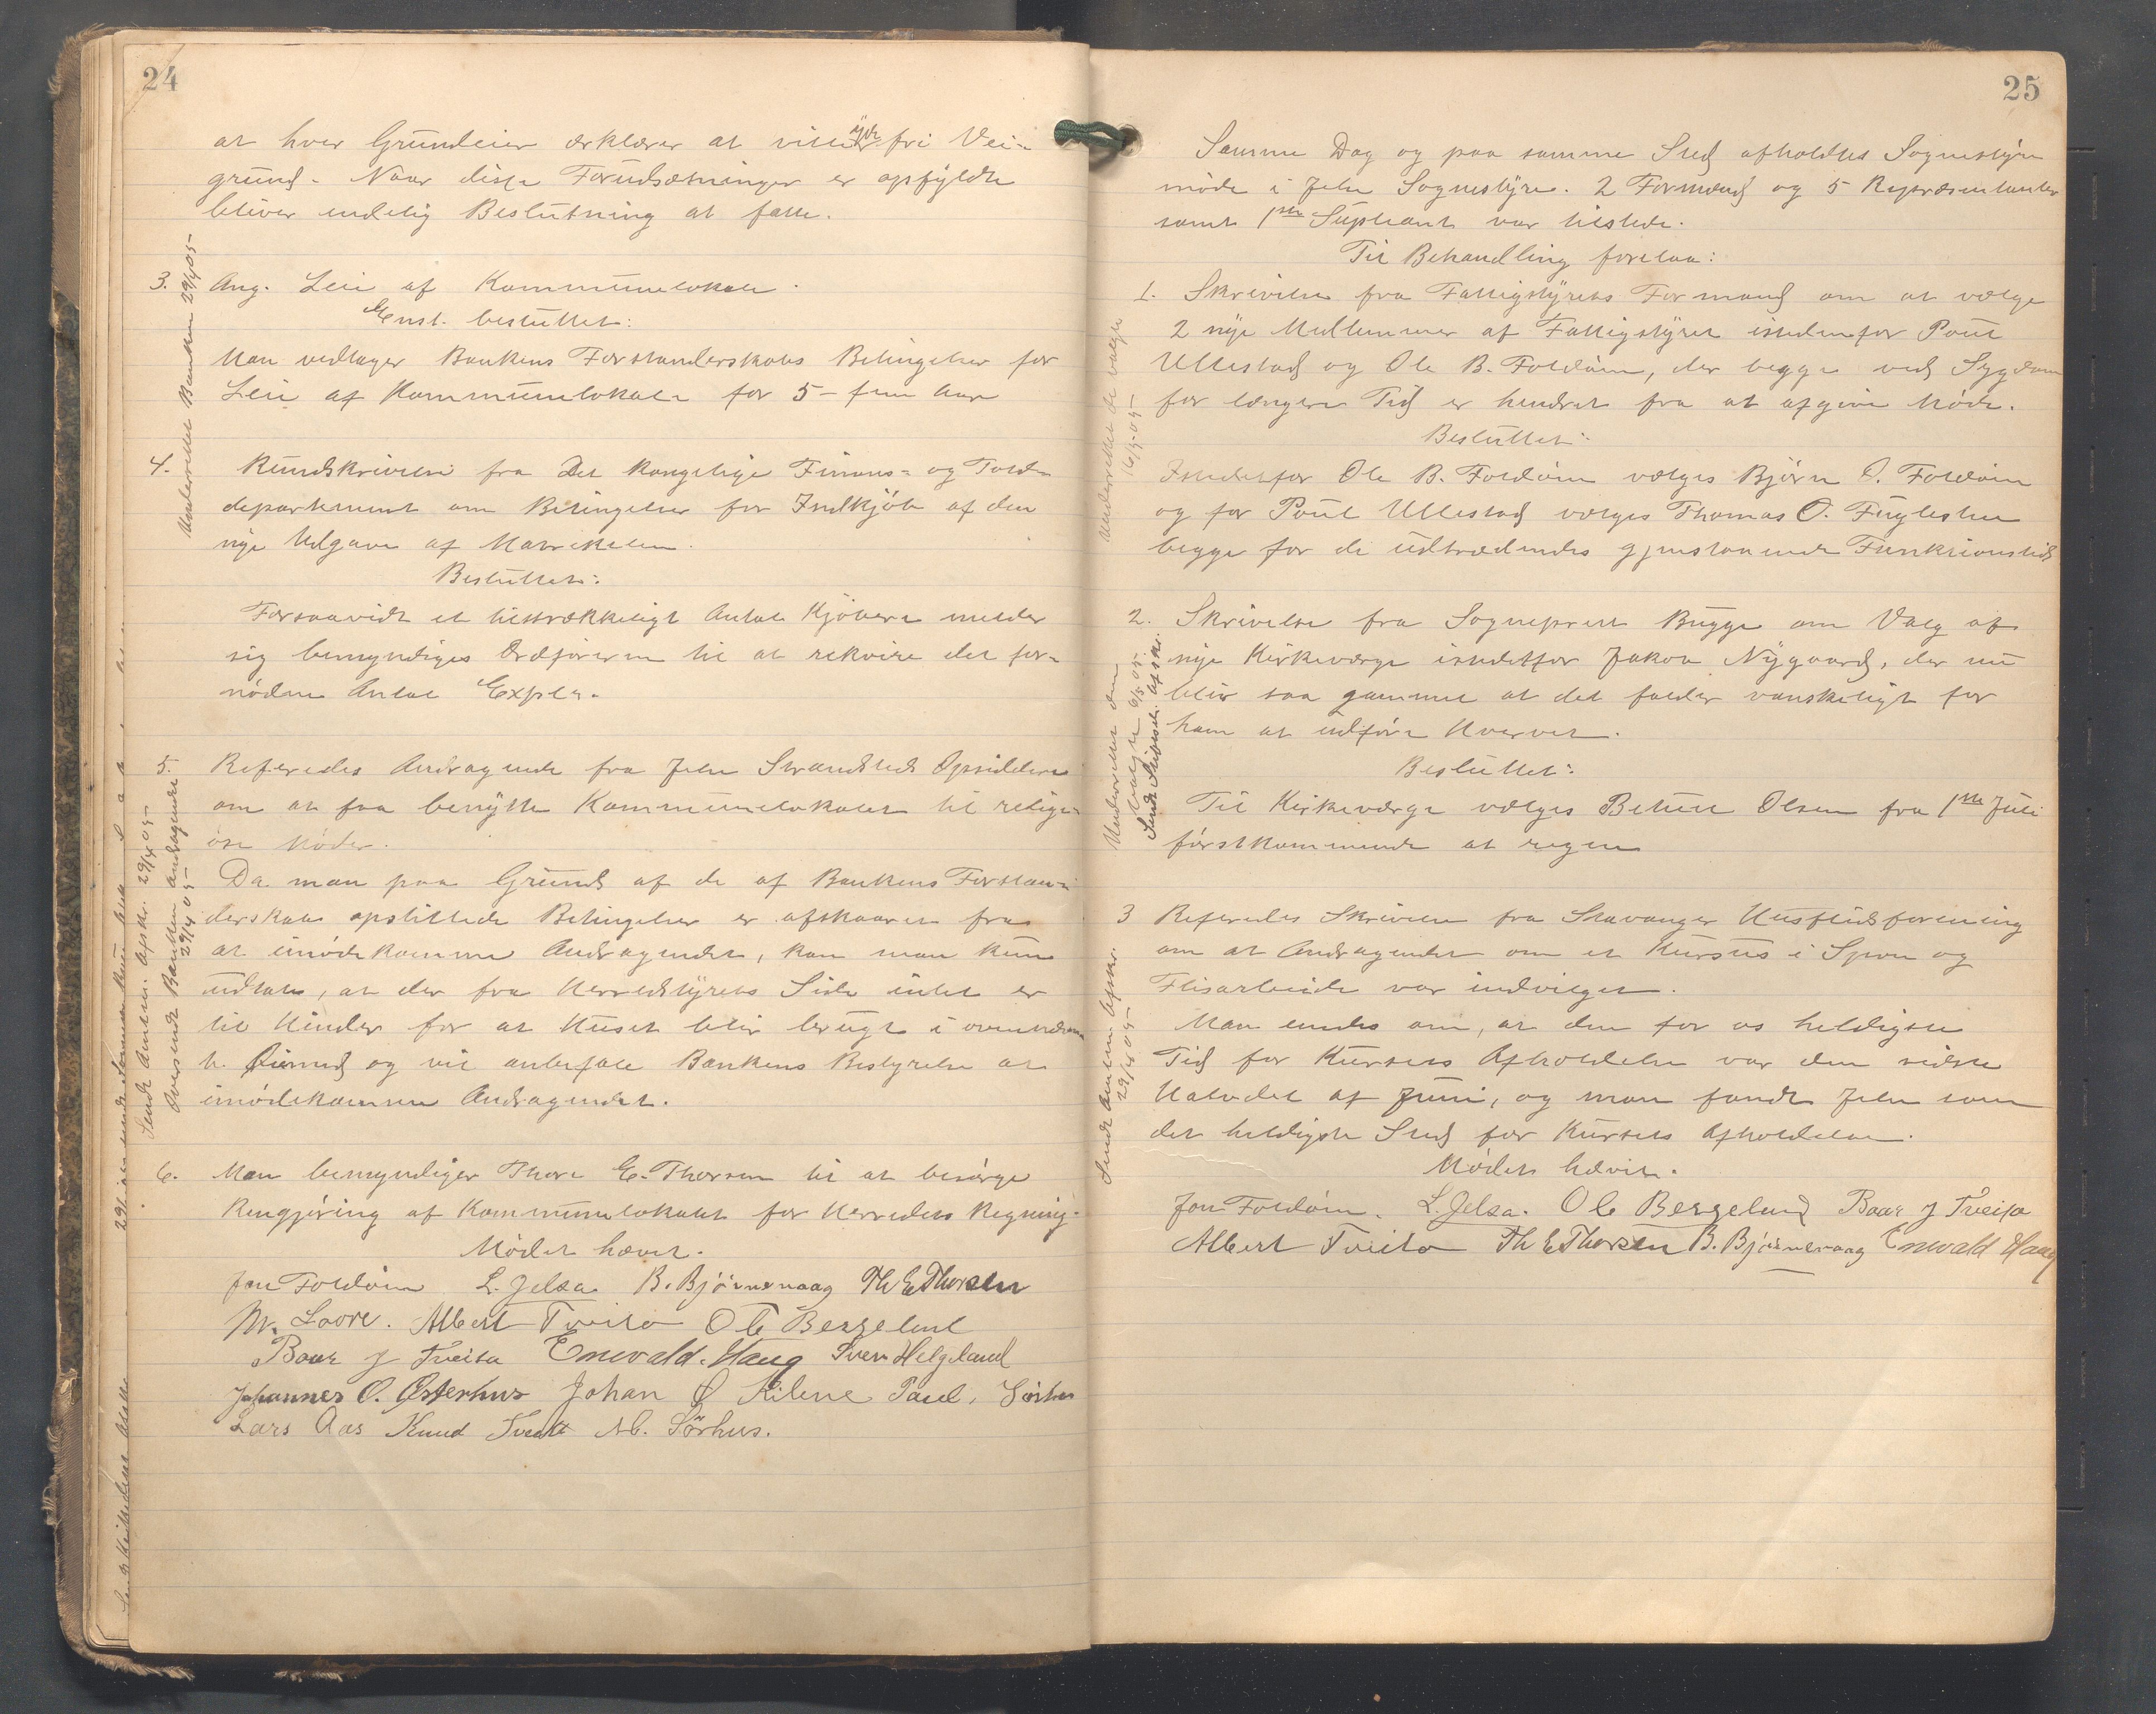 24
at hver Grundeier erklærer at ville yde fri Vei-
grund. Naar disse Forudsætninger er opfyldte
bliver endelig Beslutning at fatte.
3. Ang. Leie af Kommunelokale.
Enst. besluttet:
Man vedtager Bankens Forstanderskabs Betingelser for
Leie af Kommunelokale for 5 - fem Aar
Underrettet Banken 29/4 05-
4. Rundskrivelse fra Det kongelige Finans- og Told-
departement om Betingelser for Indkjøb af den
nye Udgave af Matrikelen.
Besluttet:
Forsaavidt et tilstrækkeligt Antal Kjøbere melder
sig bemyndiges Ordføreren til at rekvire det for-
nødne Antal Explr.
5. Refereredes Andragende fra Jelse Strandsteds Opsiddere
om at faa benytte Kommunelokalet til religi-
øse Møder.
Da man paa Grund af de af Bankens Forstan-
derskab opstillede Betingelser er afskaaret fra
at imødekomme Andragendet, kan man kun
udtale, at der fra Herredstyrets Side intet er
til Hinder for at Huset blir brugt i ovennævn-
te Øiemed og vil anbefale Bankens Bestyrelse at
imødekomme Andragendet.
Sendt Ansøgn. Afskr. 29/4 05-
Oversendt Banken Andragendet
29/4 05-
6. Man bemyndiger Thore E. Thorsen til at besørge
Rengjøring af Kommunelokalet for Herredets Regning.
Mødet hævet.
Jon Foldøen L. Jelsa B. Bjørnevaag Th E Thorsen
M. Loore. Albert Tveita O B Bergelund
Baar J Tveita Enevald. Haug Sven Helgeland
Johannes O. Østerhus Johan Ø Kilene Paul. Sørhus
Lars Aas Knud Tveit N. Sørhus.
25
Samme Dag og paa samme Sted afholdtes Sognestyre
møde i Jelse Sognestyre. 2 Formænd og 5 Repræsentanter
samt 1ste Supleant var tilstede.
Til Behandling forelaa:
1. Skrivelse fra Fattigstyrets Formand om at vælge
2 nye Medlemmer af Fattigstyret istedenfor Poul
Ullestad og Ole B. Foldøen, der begge ved Sygdom
for længere Tid er hendret fra at afgive Møde.
Besluttet:
Istedetfor Ole B. Foldøen vælges Bjørn O. Foldøen
og for Poul Ullestad vælges Thomas O. Fuglestein
begge for de udtrædendes gjenstaaende Funktionstid
Underrettet de valgte
16/5-05-
2. Skrivelse fra Sogneprest Bugge om Valg af
nye Kirkeværge istedetfor Jakob Nygaard, der nu
blir saa gammel at det falder vanskeligt for
ham at udføre Hvervet.
Besluttet:
Til Kirkeværge vælges Betuel Olsen fra 1ste Juli
førstkommende at regne
Underrettet den
valgte 6/5 05.
3 Refereredes Skrivelse fra Stavanger Husflidsforening
om at Andragendet om et Kursus i Spon og
Flisarbeide var indvilget.
Man enedes om, at den for os heldigste
Tid for Kursets Afholdelse var den sidste
Halvdel af Juni, og man fandt Jelse som
det heldigste Sted for Kursets Afholdelse.
Mødet hævet.
29/4 05-
Jon Foldøen. L. Jelsa. O B Bergelund Baar J Tveita
Albert Tveita Th E Thorsen B. Bjørnevaag Enevald Haug